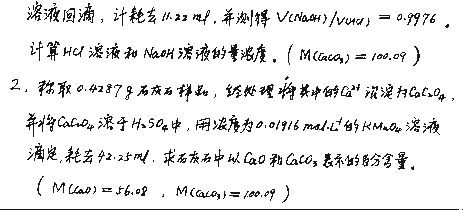 溶液回滴，计耗去11.22 ml，并测得 V(NaOH)/V(HCl) = 0.9976。
计算HCl溶液和NaOH溶液的量浓度。( M(CaCO₃) = 100.09 )
2、称取0.4287g石灰石样品，经处理将其中的Ca²⁺沉淀为CaC₂O₄，
并将CaC₂O₄溶于H₂SO₄中，用浓度为0.01916 mol·L⁻¹的KMnO₄溶液
滴定，耗去42.25ml。求石灰石中以CaO和CaCO₃表示的百分含量。
( M(CaO) = 56.08 ，M(CaCO₃) = 100.09 )